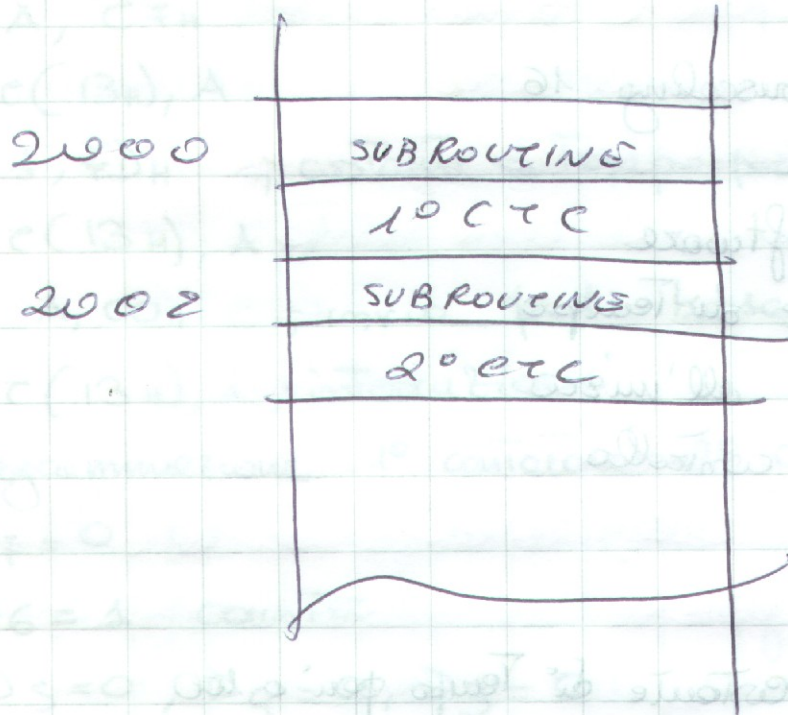 2000 SUBROUTINE
1° CTC
2002 SUBROUTINE
2° CTC